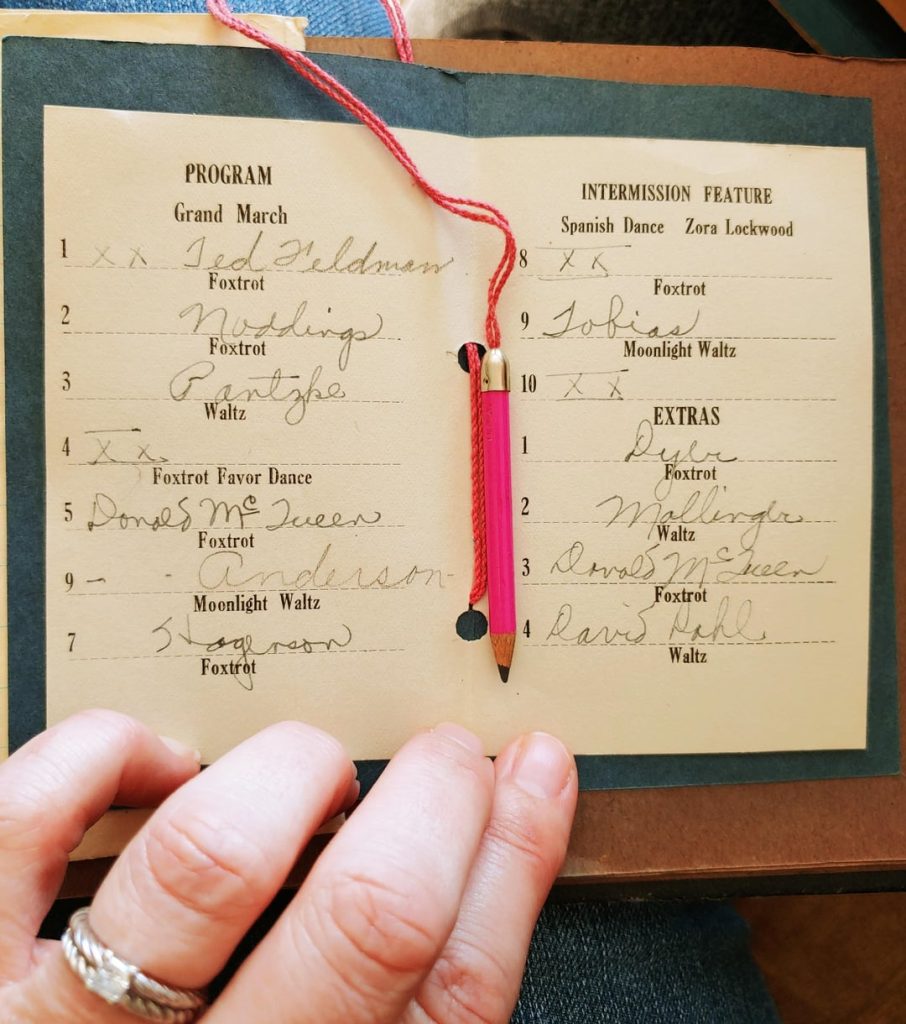 PROGRAM
Grand March
1 x x Ted Feldman
Foxtrot
2 Noddings
Foxtrot
3 Pantzke
Waltz
4 x x
Foxtrot Favor Dance
5 Donald McQueen
Foxtrot
9 - - Anderson -
Moonlight Waltz
7
Foxtrot
INTERMISSION FEATURE
Spanish Dance Zora Lockwood
8 x x
Foxtrot
9 Tobias
Moonlight Waltz
10 x x
EXTRAS
1
Foxtrot
2 Mollinger
Waltz
3 Donald McQueen
Foxtrot
4 David Dahl
Waltz